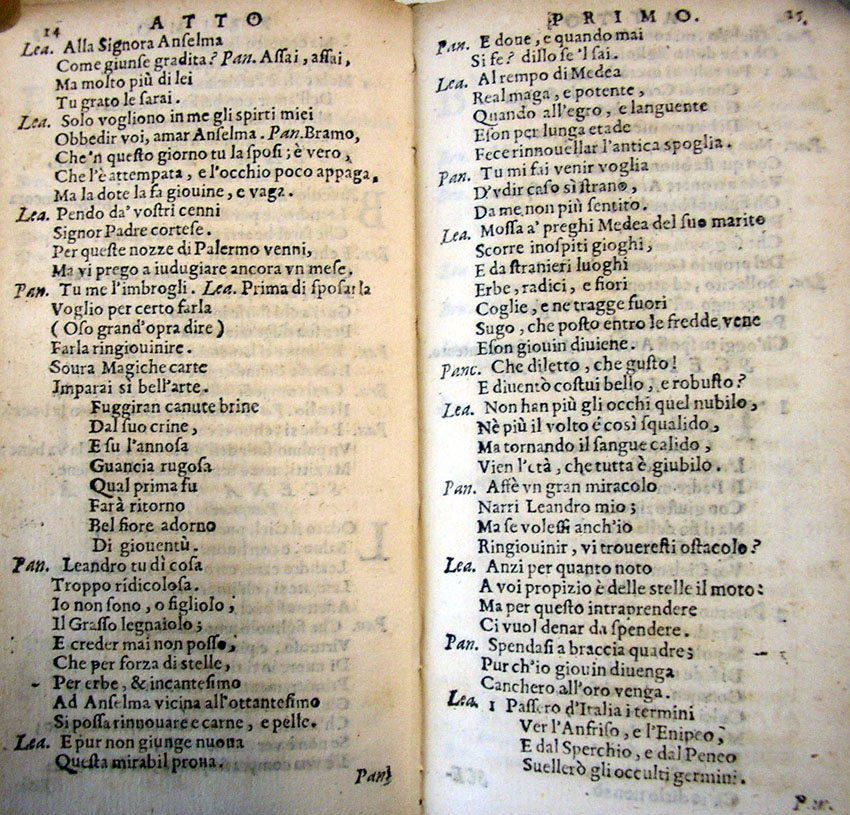 14 ATTO
Lea. Alla Signora Anselma
Come giunse gradita? Pan. Assai, assai,
Ma molto più di lei
Tu grato le sarai.
Lea. Solo vogliono in me gli spirti miei
Obbedir voi, amar Anselma. Pan. Bramo,
Che'n questo giorno tu la sposi; è vero,
Che l'è attempata, e l'occhio poco appaga,
Ma la dote la fa giouine, e vaga.
Lea. Pendo da' vostri cenni
Signor Padre cortese.
Per queste nozze di Palermo venni,
Ma vi prego a iudugiare ancora vn mese.
Pan. Tu me l'imbrogli. Lea. Prima di sposarla
Voglio per certo farla
(Oso grand'opra dire)
Farla ringiouinire.
Soura Magiche carte
Imparai sì bell'arte.
Fuggiran canute brine
Dal suo crine,
E su l'annosa
Guancia rugosa
Qual prima fu
Farà ritorno
Bel fiore adorno
Di giouentù.
Pan. Leandro tu dì cosa
Troppo ridicolosa.
Io non sono, o figliolo,
Il Grasso legnaiolo;
E creder mai non posso,
Che per forza di stelle,
Per erbe, & incantesimo
Ad Anselma vicina all'ottantesimo
Si possa rinnouare e carne, e pelle.
Lea. E pur non giunge nuoua
Questa mirabil proua.
Pan.
PRIMO. 15
Pan. E doue, e quando mai
Si fe? dillo se 'l sai.
Lea. Al tempo di Medea
Real maga, e potente,
Quando all'egro, e languente
Eson per lunga etade
Fece rinnouellar l'antica spoglia.
Pan. Tu mi fai venir voglia
D'vdir caso sì strano,
Da me non più sentito.
Lea. Mossa a' preghi Medea del suo marito
Scorre inospiti gioghi,
E da stranieri luoghi
Erbe, radici, e fiori
Coglie, e ne tragge fuori
Sugo, che posto entro le fredde vene
Eson giouin diuiene.
Panc. Che diletto, che gusto!
E diuentò costui bello, e robusto?
Lea. Non han più gli occhi quel nubilo,
Nè più il volto é così squalido,
Ma tornando il sangue calido,
Vien l'età, che tutta è giubilo.
Pan. Affè vn gran miracolo
Narri Leandro mio;
Ma se volessi anch'io
Ringiouinir, vi troueresti ostacolo?
Lea. Anzi per quanto noto
A voi propizio è delle stelle il moto:
Ma per questo intraprendere
Ci vuol denar da spendere.
Pan. Spendasi a braccia quadre;
Pur ch'io giouin diuenga
Canchero all'oro venga.
Lea. 1 Passero d'Italia i termini
Ver l'Anfriso, e l'Enipeo,
E dal Sperchio, e dal Peneo
Suellerò gli occulti germini.